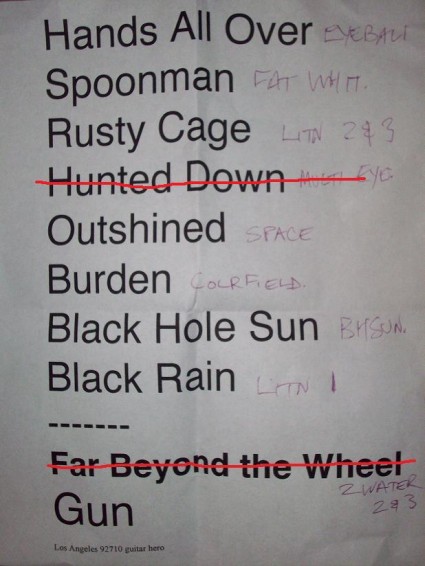 Hands All Over EYEBALL
Spoonman FAT WHIT.
Rusty Cage LITN 2 & 3
Hunted Down MULTI EYE
Outshined SPACE
Burden COLRFIELD.
Black Hole Sun BHSUN.
Black Rain LITN 1
-------
Far Beyond the Wheel
2 WATER
2 & 3
Gun
Los Angeles 92710 guitar hero